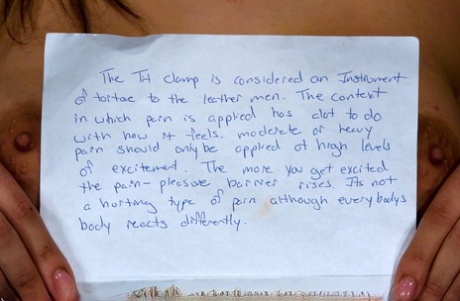 The Tit clamp is considered an Instrument
of tortue to the leather men. The context
in which pain is applied has alot to do
with how it feels. moderate or heavy
pain should only be applied at high levels
of excitement. The more you get excited
the pain-pleasure barrier rises. Its not
a hurting type of pain although everybodys
body reacts differently.